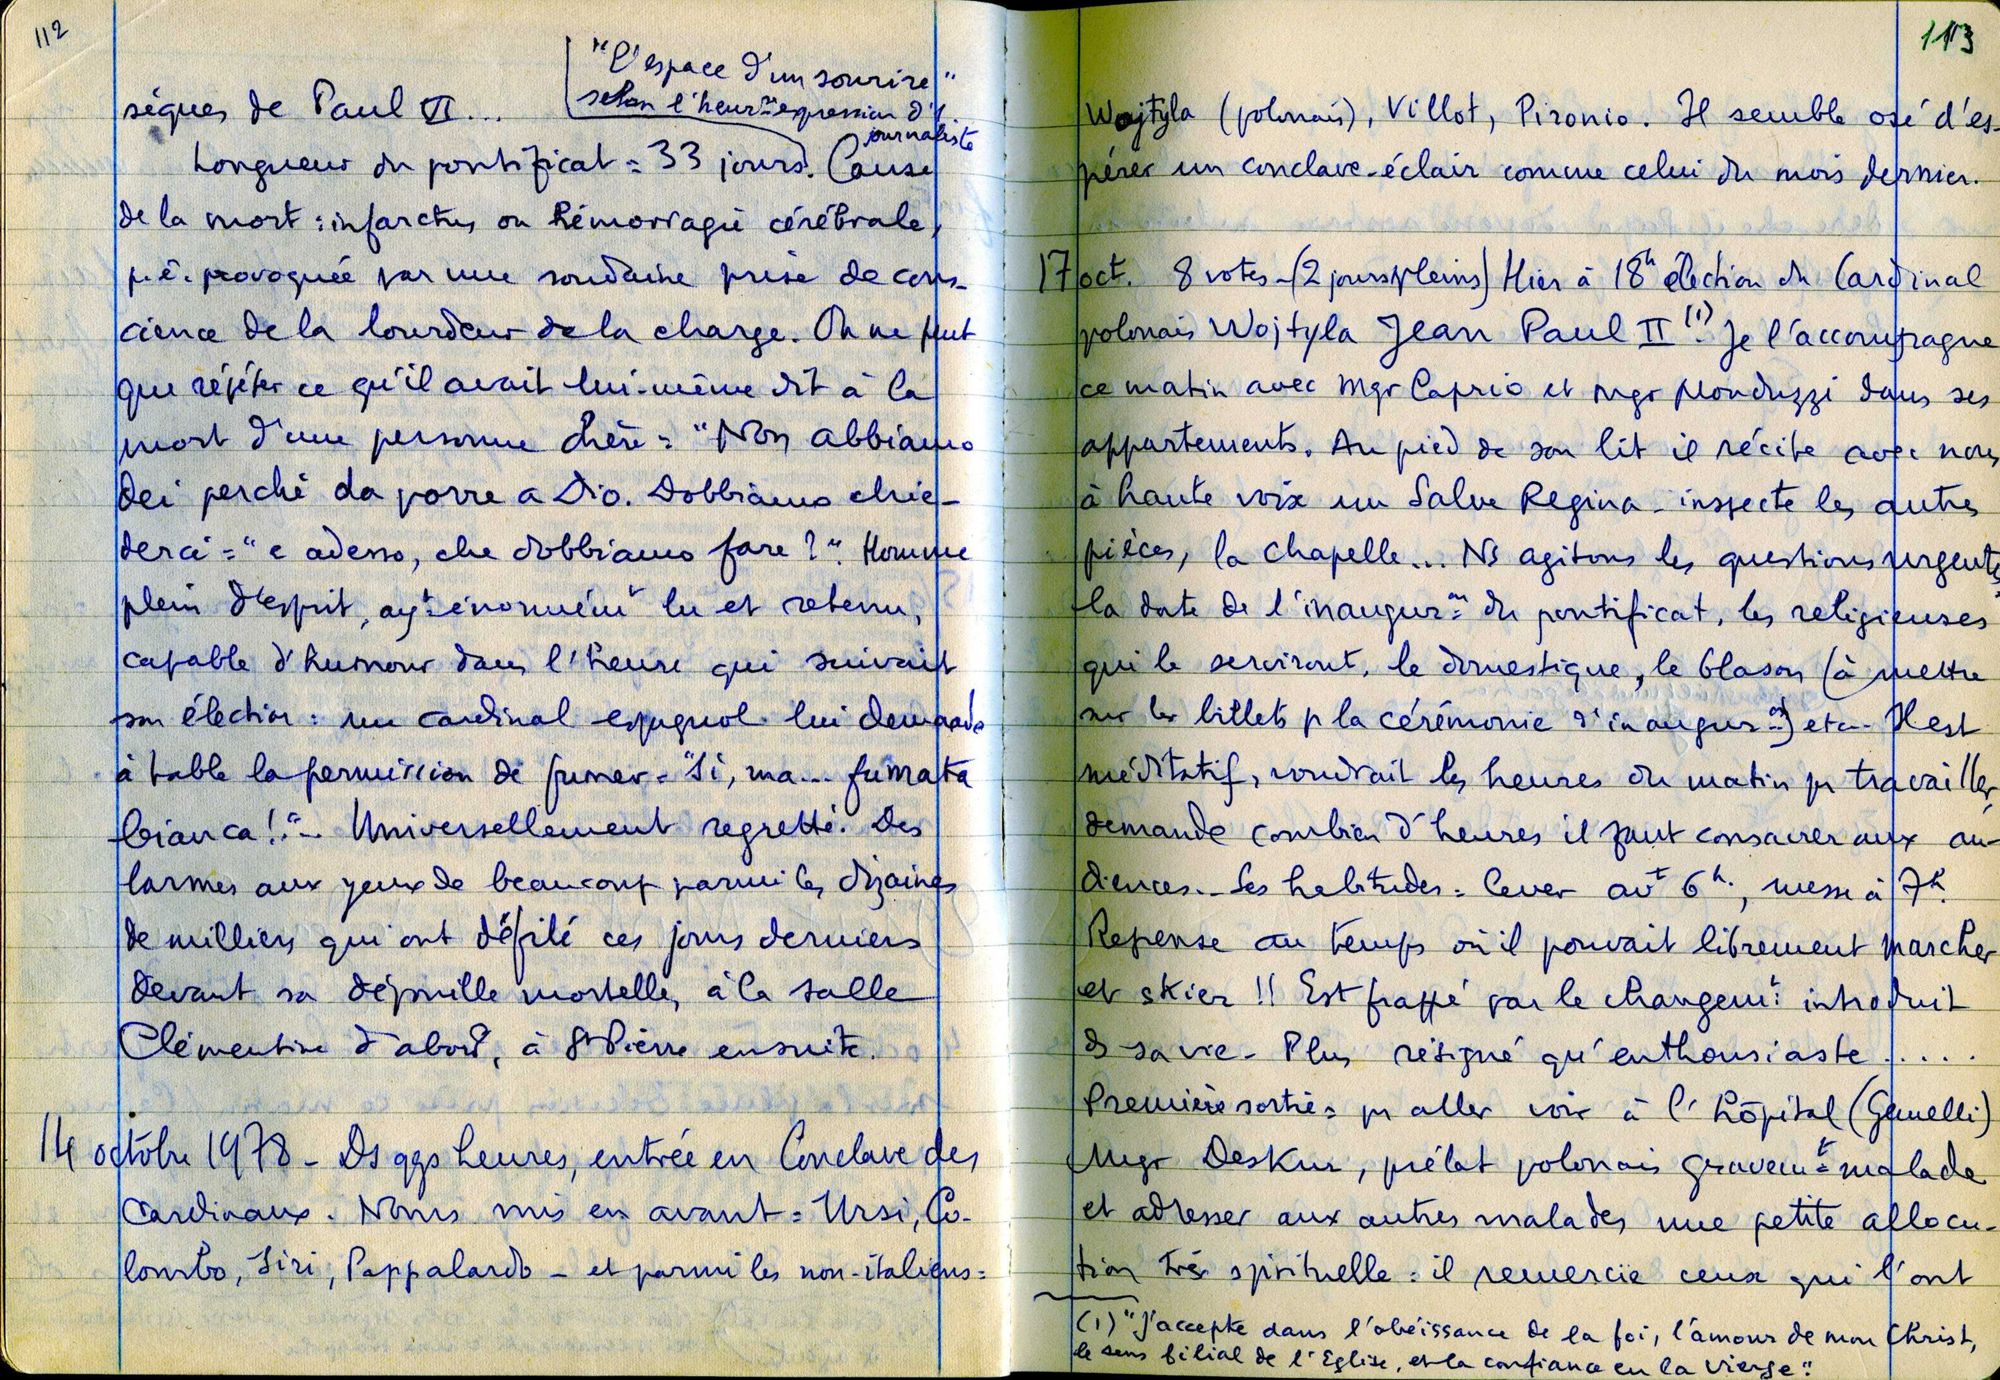 112
"l'espace d'un sourire"
selon l'heur.se expression d'1
journaliste
sèques de Paul VI...
Longueur du pontificat = 33 jours. Cause
de la mort : infarctus ou hémorragie cérébrale,
p.ê. provoquée par une soudaine prise de cons-
cience de la lourdeur de la charge. On ne peut
que répéter ce qu'il avait lui-même dit à la
mort d'une personne chère = "Non abbiamo
dei perché da porre a Dio. Dobbiamo chie-
derci = "e adesso, che dobbiamo fare ?". Homme
plein d'esprit, ayt énormémt lu et retenu,
capable d'humour dans l'heure qui suivait
son élection : un cardinal espagnol lui demande
à table la permission de fumer = "Si, ma... fumata
bianca !". - Universellement regretté. Des
larmes aux yeux de beaucoup parmi les dizaines
de milliers qui ont défilé ces jours derniers
devant sa dépouille mortelle, à la salle
Clémentine d'abord, à St Pierre ensuite.
14 octobre 1978 - Ds qqs heures, entrée en Conclave des
Cardinaux. Noms mis en avant = Ursi, Co-
lombo, Siri, Pappalardo - et parmi les non-italiens =
113
Wojtyla (polonais), Villot, Pironio. Il semble osé d'es-
pérer un conclave-éclair comme celui du mois dernier.
17 oct. 8 votes - (2 jours pleins) Hier à 18h élection du Cardinal
polonais Wojtyla Jean Paul II (1). Je l'accompagne
ce matin avec Mgr Caprio et Mgr Monduzzi dans ses
appartements. Au pied de son lit il récite avec nous
à haute voix un Salve Regina - inspecte les autres
pièces, la chapelle... Ns agitons les questions urgentes,
la date de l'inaugur.on du pontificat, les religieuses
qui le serviront, le domestique, le blason (à mettre
sur les billets p la cérémonie d'inaugur.on) etc - Il est
méditatif, voudrait les heures du matin pr travailler,
demande combien d'heures il faut consacrer aux au-
diences. - Ses habitudes = lever avt 6h., messe à 7h.
Repense au temps où il pouvait librement marcher
et skier !! Est frappé par le changemt introduit
ds sa vie - Plus résigné qu'enthousiaste .....
Première sortie = pr aller voir à l'hôpital (Gemelli)
Mgr Deskur, prélat polonais gravemt malade
et adresser aux autres malades une petite allocu-
tion très spirituelle : il remercie ceux qui l'ont
(1) "J'accepte dans l'obéissance de la foi, l'amour de mon Christ,
le sens filial de l'Eglise, et la confiance en la Vierge".